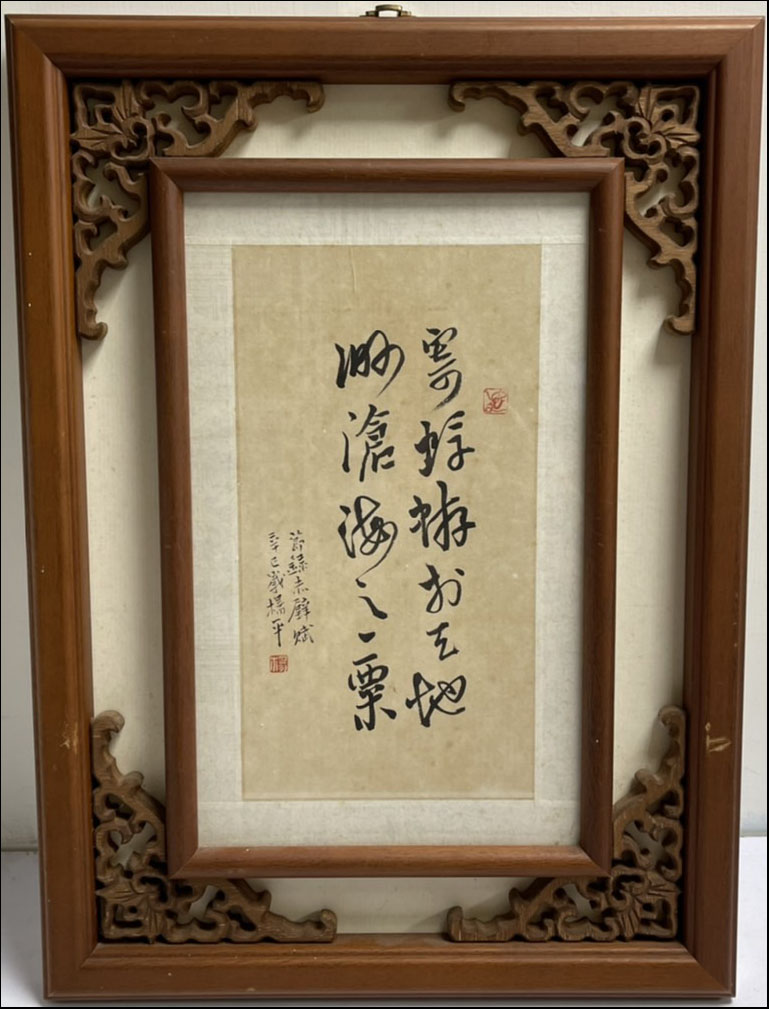 寄蜉蝣於天地
渺滄海之一粟
節錄赤壁賦
辛巳歲楊平